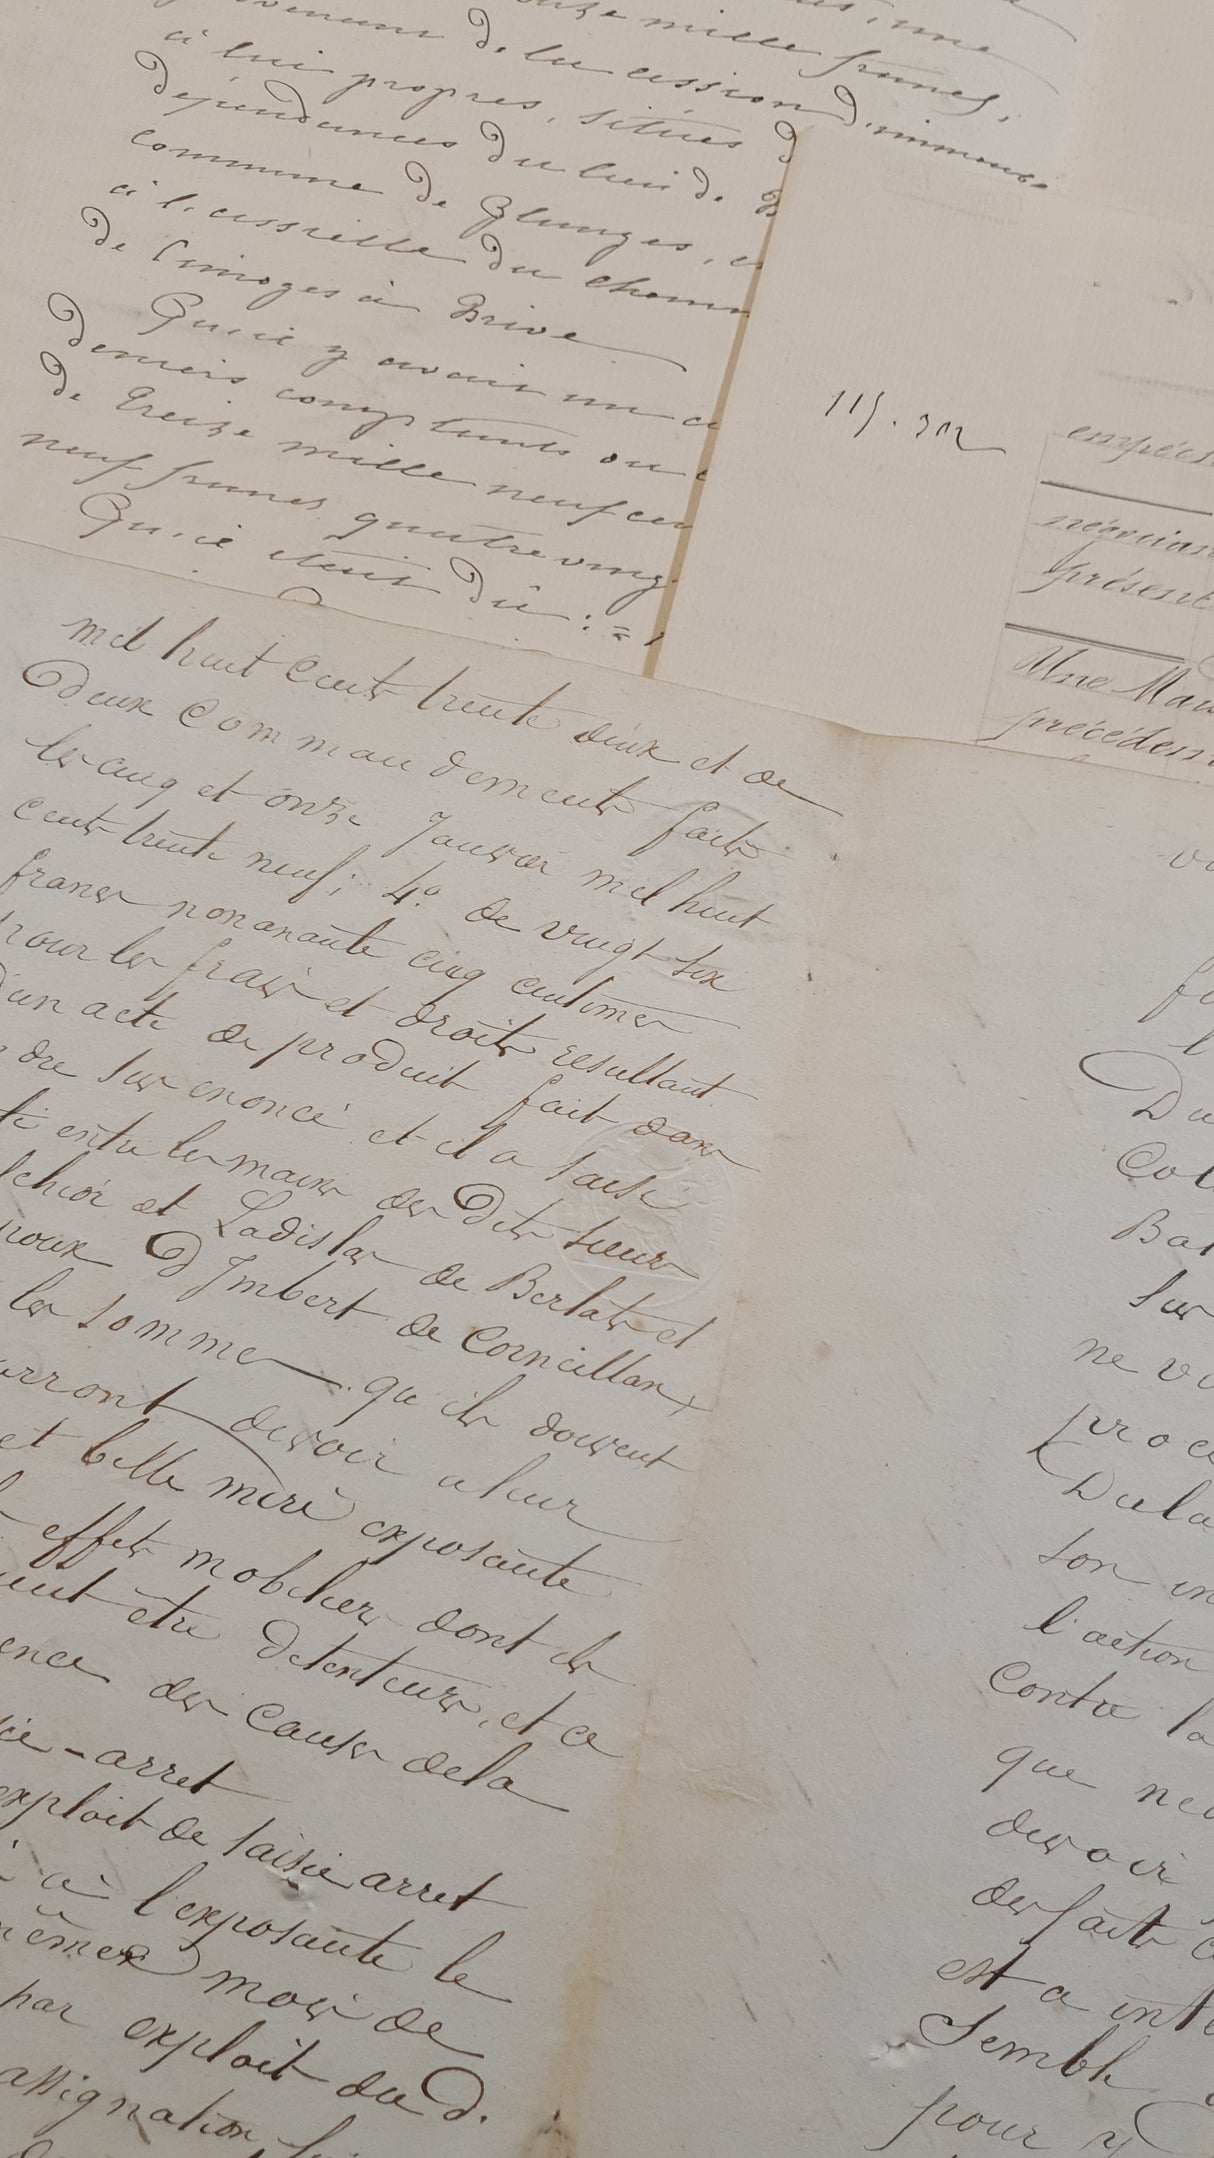 mille francs,
provenant de la cession d'immeubles
à lui propres, situés d
dépendances du lieu de B
commune de Blanges, e
à l'assiette du chemin
de Limoges à Brive
Qu'il y avait un
deniers comptants ou
de treize mille neuf cen
neuf francs quatre ving
Qu'il était dû : =
115.
empêch
négocian
présent
Une Mau
précéden
mil huit cents trente deux et de
deux Commandements faits
les cinq et onze Janvier mil huit
cents trente neuf; 4.º de vingt six
francs nonanante cinq centimes
pour les frais et droits resultant
d'un acte de produit fait dans
dre sus enoncé et il a saisi
entre les mains des dits sieurs
lchior et Ladislas de Berlats et
poux D'Imbert de Corneillan
les sommes qu'ils doivent
rront devoir a leur
et belle mère exposante
effets mobiliers dont ils
uvent être detenteurs, et ce
ence des causes de la
sie-arret
exploit de saisie arret
à l'exposante le
mêmes mois de
par exploit du d.
assignation
Du
Col
Bar
sur
ne v
proce
Dela
son in
l'action
Contre la
que ne
devoir
des faits
est a inte
Semble
pour y